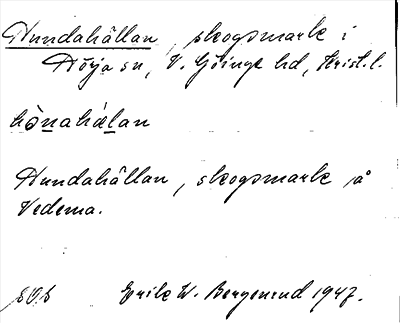 Hundahällan, skogsmark i
Nörja sn, V. Göinge hd, Krist. l.
hònahälan
Hundahällan, skogsmark på
Vedema.
Erik W. Bergenrud 1947.